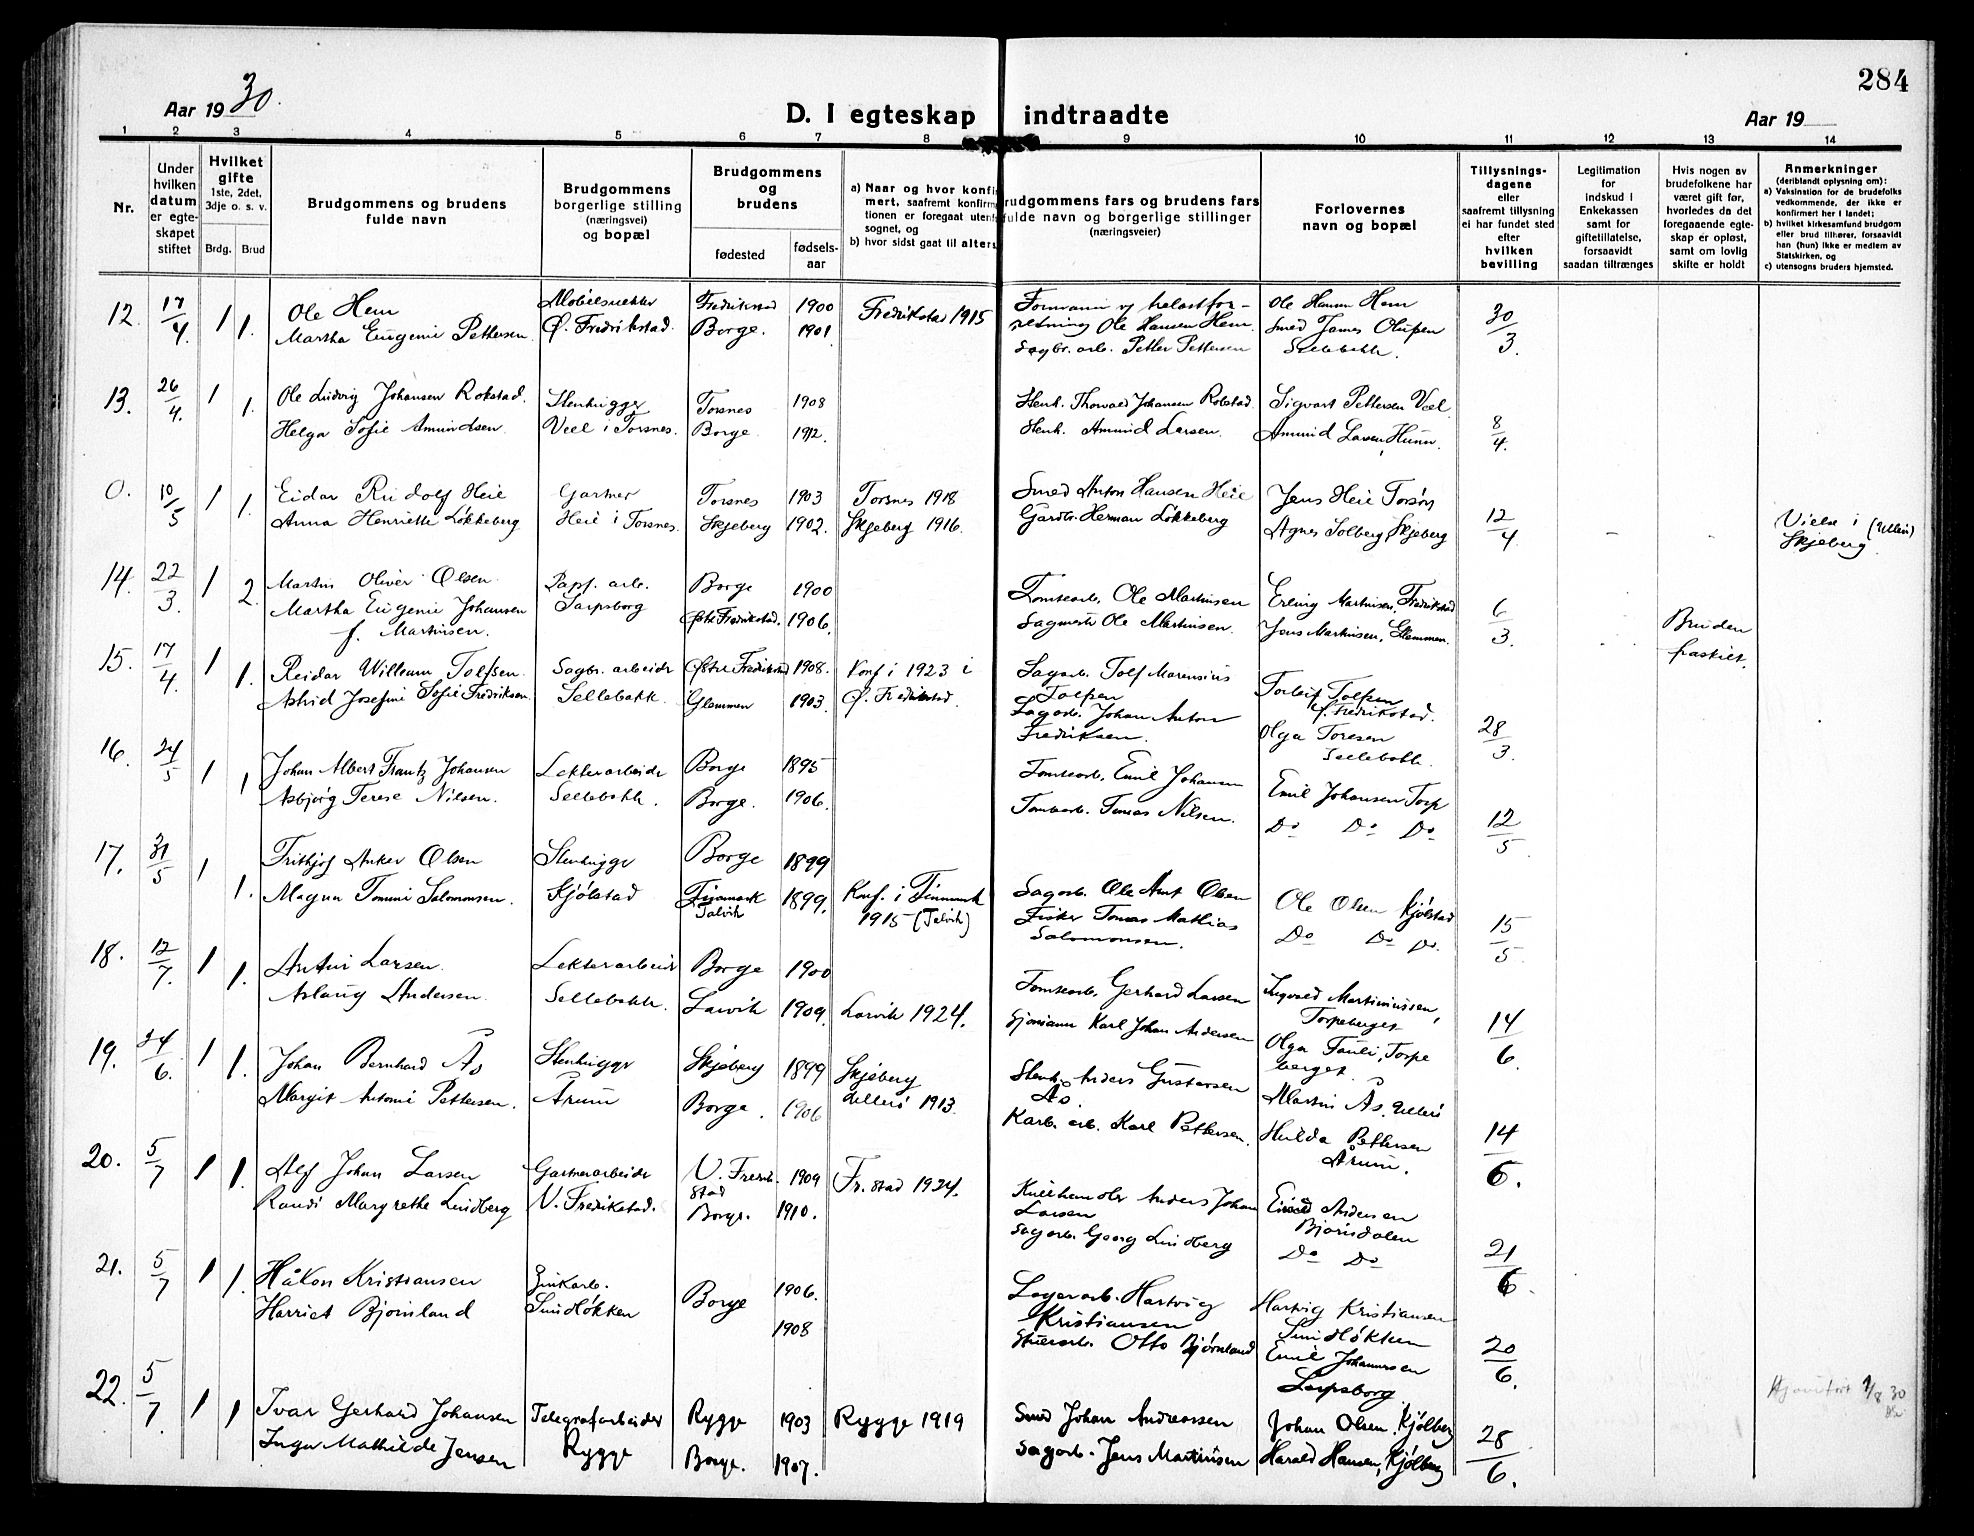 284
Aar 1930.
D. I egteskap indtraadte
Aar 19
1 2 3 4 5 6 7 8 9 10 11 12 13 14
Nr.
Under hvilken datum er egteskapet stiftet
Hvilket gifte
1ste, 2det. 3dje o. s. v.
Brdg. Brud
Brudgommens og brudens fulde navn
Brudgommens borgerlige stilling (næringsvei) og bopæl
Brudgommens og brudens
fødested
fødsels-aar
a) Naar og hvor konfi
mert, saafremt konfirm
tionen er foregaat utenf
sognet, og
b) hvor sidst gaat til alters
rudgommens fars og brudens fars
fulde navn og borgerlige stillinger
(næringsveier)
Forlovernes navn og bopæl
Tillysnings-dagene eller saafremt tillysning ei har fundet sted efter hvilken bevilling
Legitimation for indskud i Enkekassen samt for giftetillatelse, forsaavidt saadan tiltrænges
Hvis nogen av brudefolkene har været gift før, hvorledes da det foregaaende egteskap er opløst, samt om lovlig skifte er holdt
Anmerkninger
(deriblandt oplysning om):
a) Vaksination for de brudefolks vedkommende, der ikke er konfirmert her i landet;
b) hvilket kirkesamfund brudgom eller brud tilhører, forsaavidt han (hun) ikke er medlem av Statskirken, og
c) utensogns bruders hjemsted.
12. 17/4. 1 1. Ole Hem Fredrikstad 1900 Fredrikstad 1915 Ole Hansen Hem 30/3.
Martha Eugenie Pettersen Ø. Fredrikstad. Borge. 1901. Ole Hansen Hem. Smed James Olufsen
Sagbr. arb. Petter Pettersen Sellebakk.
13. 26/4. 1 1. Ole Ludvig Johansen Rokstad. Stenhugger Torsnes 1908 Stenh. Thorvald Johansen Rokstad. Sigvart Pettersen Væl 8/4.
Helga Sofie Amundsen. Væl i Torsnes. Borge 1912. Stenh. Amund Larsen. Amund Larsen, Hunn.
0. 10/5 1 1. Eidar Rudolf Heie Gartner Torsnes 1903 Torsnes 1918 Smed Anton Hansen Heie Jens Heie Torsnes 12/4. - - Vielse i (Ullerø)
Anna Henriette Løkkeberg Heie i Torsnes. Skjeberg 1902. Skjeberg 1916. Gardbr. Herman Løkkeberg Agnes Solberg, Skjeberg Skjeberg.
14. 22/3. 1 2. Martin Oliver Olsen Papf. arb. Borge 1900 Tomtearb. Ole Martinsen Erling Martinsen, Fredrikstad 6/3. Bruden
Martha Eugenie Johansen Sarpsborg Østre Fredrikstad. 1906. Ole Martinsen. Jens Martinsen, Glemmen. fraskilt.
f. Martinsen.
15. 17/4. 1 1. Reidar Willeum Tolfsen. Sagbr. arbeider Østre Fredrikstad 1908. Konf i 1923 i Sagarb. Tolf Marensius Torleif Tolfsen 28/3.
Astrid Josefine Sofie Fredriksen. Sellebakk. Glemmen 1903. Ø. Fredrikstad. Tolfsen Ø. Fredrikstad.
Sagarb. Johan Anton Olga Toresen
Fredriksen. Sellebakk.
16. 24/5 1 1 Johan Albert Frantz Johansen Lekterarbeider Borge 1895 Tomtearb. Emil Johansen Emil Johansen Torp 12/5
Asbjørg Terese Nilsen. Sellebakk. Borge. 1906. Tomtearb. Tomas Nilsen. Do Do Do
17. 31/5 1 1. Frithjof Anker Olsen Stenhugger Borge 1899 Sagarb. Ole Ant Olsen Ole Olsen Kjølstad 15/5
Magna Tomine Salomonsen. Kjølstad Finmark Talvik 1899. Konf. i Finmark Fisker Tomas Mathias Do Do Do.
1915 (Talvik) Salomonsen.
18. 12/7. 1 1. Anton Larsen. Lekterarbeider Borge 1900 Tomtearb. Gerhard Larsen Ingvald Martiniussen, 14/6.
Aslaug Andersen. Sellebakk. Larvik 1909. Larvik 1924. Sjømann Karl Johan Andersen Torpeberget
Olga Torpeberget.
19. 24/6. 1 1. Johan Bernhard Ås Stenhugger Skjeberg 1899 Skjeberg Stenh. Anders Gustavsen Martin Ås, Ullerø 14/6.
Margit Antonie Pettersen. Årum Borge. 1906 Ullerø 1913. Ås.
Karb. arb. Karl Pettersen. Hulda Pettersen
Årum.
20. 5/7 1 1. Alf Johan Larsen Gartnerarbeider V. Fredrikstad 1909 Fr.stad 1924. Anders Johan Andersen 21/6.
Randi Margrethe Lindberg V. Fredrikstad. Borge. 1910. Larsen Bjørndalen
Sagarb. Georg Lindberg Do Do
21. 5/7 1 1. Håkon Kristiansen Zinkarb. Borge 1906. Lagerarb. Hartvig Hartvig Kristiansen 20/6.
Harriet Bjørnland Sundløkken 1908 Kristiansen Sundløkken
Otto Bjørnland Emil Johannessen
Sarpsborg.
22. 5/7. 1 1 Ivar Gerhard Johansen Telegrafarbeider Rygge 1903 Rygge 1919 Smed Johan Andreassen Johan Olsen, Kjølberg 28/6.
Inga Mathilde Jensen Rygge Borge. 1907. Sagarb. Jens Martinsen Harald Hansen, Kjølberg